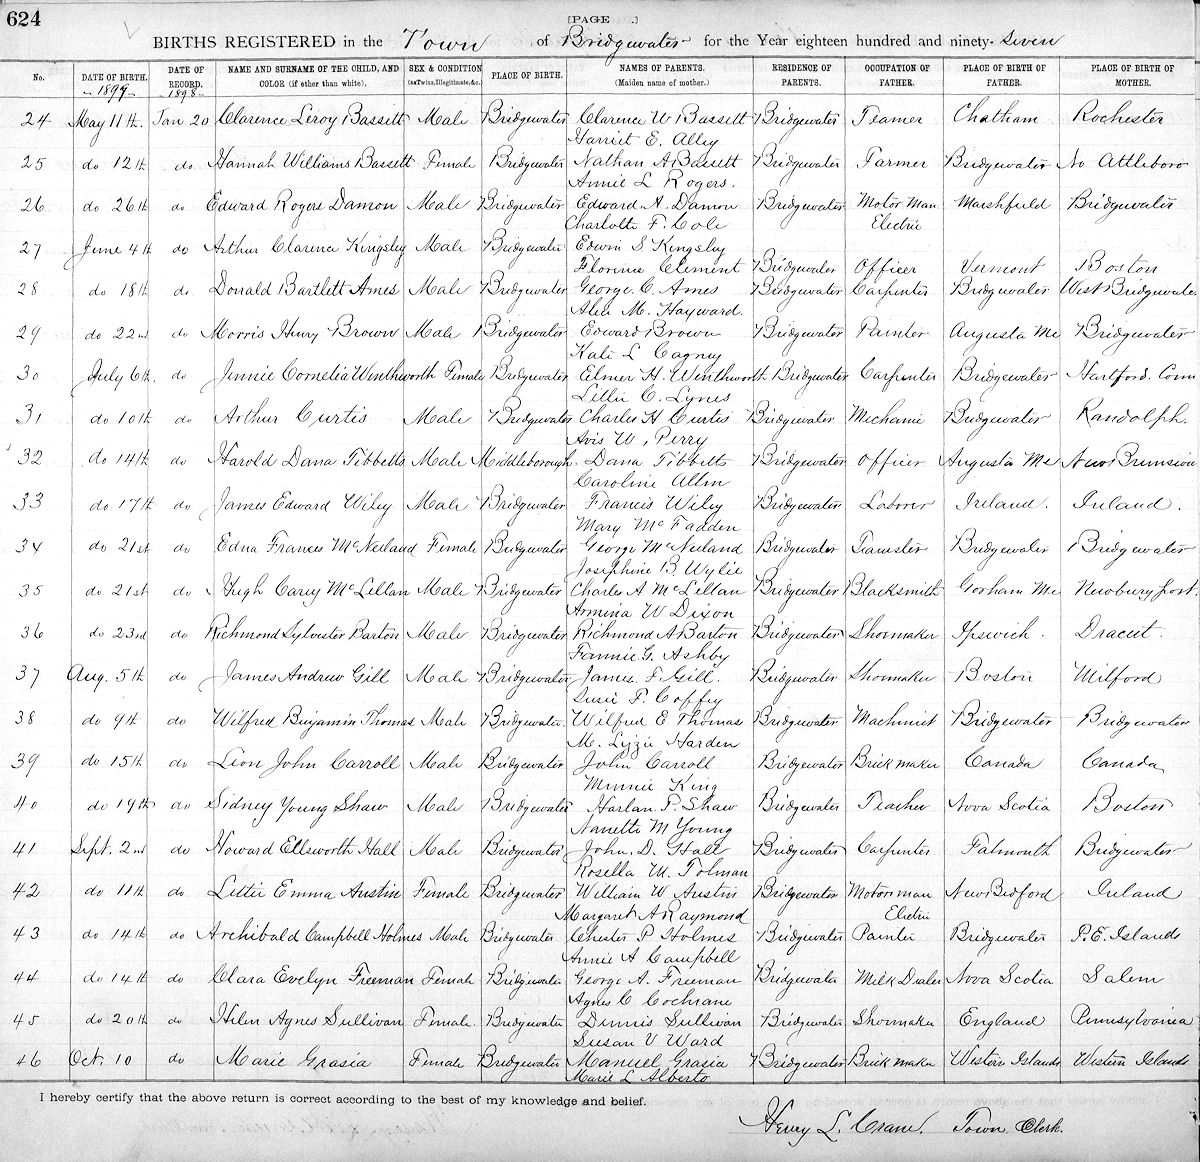 624
[PAGE .]
BIRTHS REGISTERED in the Town of Bridgewater for the Year eighteen hundred and ninety-seven
No. DATE OF BIRTH. DATE OF RECORD. NAME AND SURNAME OF THE CHILD, AND COLOR (if other than white). SEX & CONDITION (as Twins, Illegitimate, &c.) PLACE OF BIRTH. NAMES OF PARENTS. (Maiden name of mother.) RESIDENCE OF PARENTS. OCCUPATION OF FATHER. PLACE OF BIRTH OF FATHER. PLACE OF BIRTH OF MOTHER.
-1897- 1898-
24 May 11th. Jan 20 Clarence Leroy Bassett Male Bridgewater Clarence W Bassett Bridgewater Teamer Chatham Rochester
Harriet E. Alley
25 do 12th do Hannah Williams Bassett Female Bridgewater Nathan A Bassett Bridgewater Farmer Bridgewater No Attleboro
Annie L Rogers.
26 do 26th do Edward Rogers Damon Male Bridgewater Edward A. Damon Bridgewater Motor Man Marshfield Bridgewater
Charlotte F. Cole Electric
27 June 4th do Arthur Clarence Kingsley Male Bridgewater Edwin S Kingsley
Florence Clement Bridgewater Officer Vermont Boston
28 do 18th do Donald Bartlett Ames Male Bridgewater George C. Ames Bridgewater Carpenter Bridgewater West Bridgewater
Alice M. Hayward.
29 do 22nd do Morris Henry Brown Male Bridgewater Edward Brown Bridgewater Painter Augusta Me Bridgewater
Kate L Cagney
30 July 6th. do Jennie Cornelia Winthworth Female Bridgewater Elmer H. Winthworth Bridgewater Carpenter Bridgewater Hartford. Conn
Lillie C. Lynes
31 do 10th do Arthur Curtis Male Bridgewater Charles H Curtis Bridgewater Mechanic Bridgewater Randolph.
Avis W. Perry
32 do 14th do Harold Dana Tibbetts Male Middleborough Dana Tibbetts Bridgewater Officer Augusta Me New Brunswick
Caroline Allen
33 do 17th do James Edward Wiley Male Bridgewater Francis Wiley Bridgewater Laborer Ireland. Ireland.
Mary McFadden
34 do 21st do Edna Frances McNeiland Female Bridgewater George McNeiland Bridgewater Teamster Bridgewater Bridgewater
Josephine B. Wylie
35 do 21st do Hugh Carey McLellan Male Bridgewater Charles A McLellan Bridgewater Blacksmith Gorham Me Newburyport.
Armina W Dixon
36 do 23rd do Richmond Sylvester Barton Male Bridgewater Richmond A Barton Bridgewater Shoemaker Ipswich. Dracut.
Fannie G. Ashby
37 Aug. 5th do James Andrew Gill Male Bridgewater James F. Gill. Bridgewater Shoemaker Boston Milford
Susie F. Coffey
38 do 9th do Wilfred Benjamin Thomas Male Bridgewater. Wilfred E Thomas Bridgewater Machinist Bridgewater Bridgewater
M. Lizzie Harden
39 do 15th do Leon John Carroll Male Bridgewater John Carroll Bridgewater Brick maker Canada Canada
Minnie King
40 do 19th do Sidney Young Shaw Male Bridgewater Harlan P. Shaw Bridgewater Teacher Nova Scotia Boston
Nanette M Young
41 Sept. 2nd do Howard Ellsworth Hall Male Bridgewater John. D. Hall Bridgewater Carpenter Falmouth Bridgewater
Rosella M. Tolman
42 do 11th do Lettie Emma Austin Female Bridgewater William W Austin Bridgewater Motorman New Bedford Ireland
Margaret A Raymond Electric
43 do 14th do Archibald Campbell Holmes Male Bridgewater Chester P Holmes Bridgewater Painter Bridgewater P.E. Islands
Annie A Campbell
44 do 14th do Clara Evelyn Freeman Female Bridgewater George A. Freeman Bridgewater Milk Dealer Nova Scotia Salem
Agnes C Cochrane
45 do 20th do Helen Agnes Sullivan Female Bridgewater Dennis Sullivan Bridgewater Shoemaker England Pennsylvania
Susan V Ward
46 Oct. 10 do Marie Grasia Female Bridgewater Manuel Grasia Bridgewater Brick maker Western Islands Western Islands
Marie L Alberto
I hereby certify that the above return is correct according to the best of my knowledge and belief.
Henry L. Crane. Town Clerk.